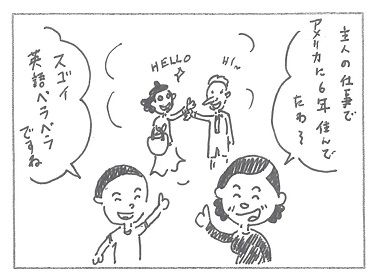 主人の仕事で
アメリカに6年住んで
たわ〜
HELLO
Hi〜
スゴイ
英語ペラペラ
ですね